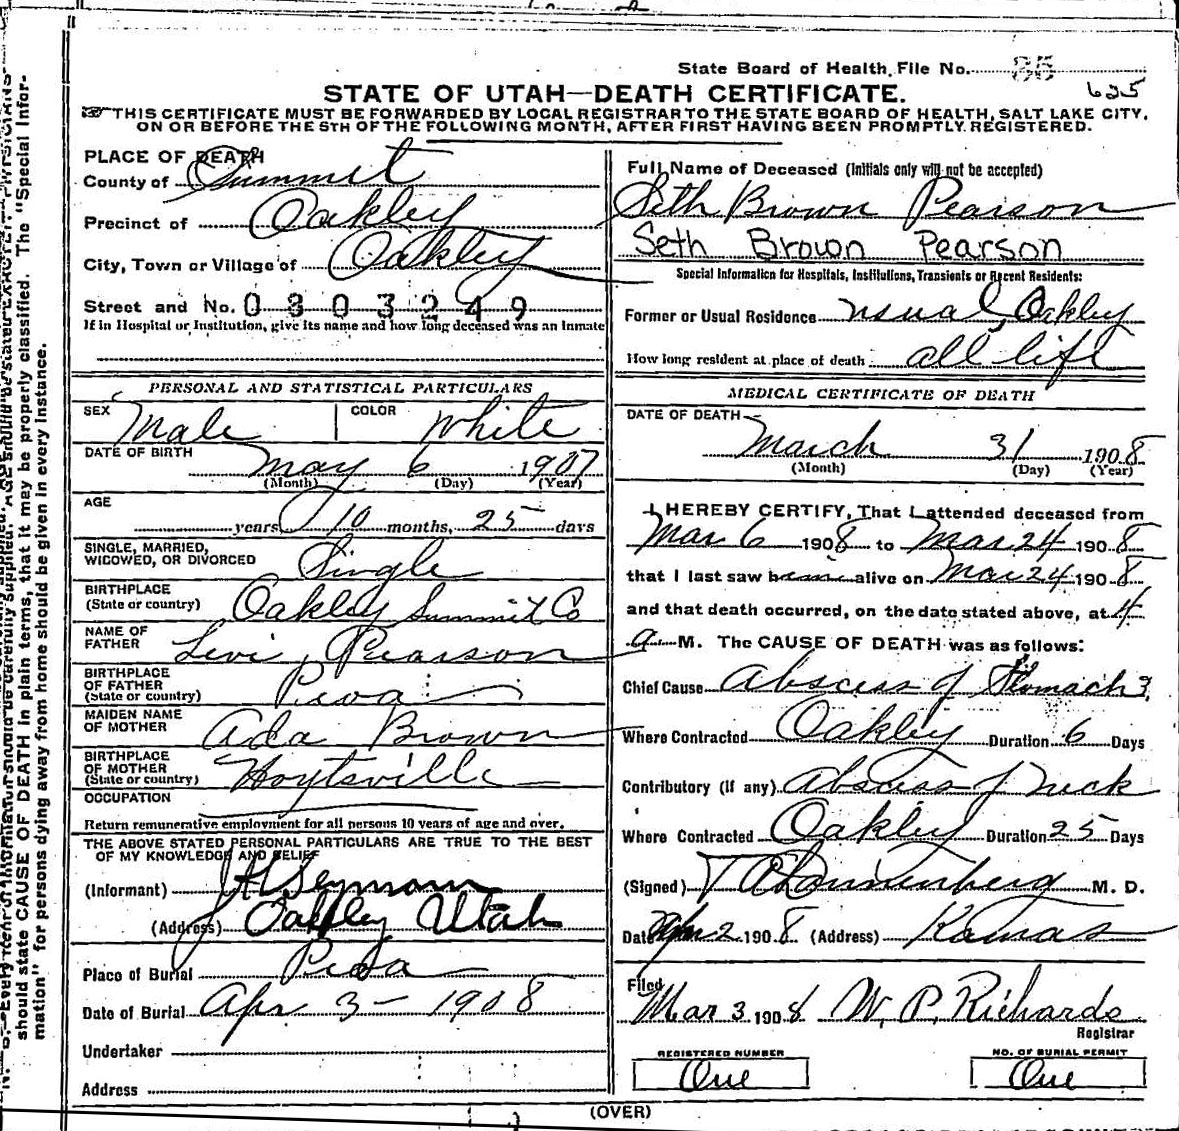 State Board of Health, File No. 85
625
STATE OF UTAH—DEATH CERTIFICATE.
THIS CERTIFICATE MUST BE FORWARDED BY LOCAL REGISTRAR TO THE STATE BOARD OF HEALTH, SALT LAKE CITY,
ON OR BEFORE THE 5TH OF THE FOLLOWING MONTH, AFTER FIRST HAVING BEEN PROMPTLY REGISTERED.
should state CAUSE OF DEATH in plain terms, that it may be properly classified. The "Special Infor-
mation" for persons dying away from home should be given in every instance.
PLACE OF DEATH
County of Summit
Precinct of Oakley
City, Town or Village of Oakley
Street and No. 0803249
If in Hospital or Institution, give its name and how long deceased was an inmate
PERSONAL AND STATISTICAL PARTICULARS
SEX Male COLOR White
DATE OF BIRTH May 6 1907
(Month) (Day) (Year)
AGE
years 10 months, 25 days
SINGLE, MARRIED,
WIDOWED, OR DIVORCED Single
BIRTHPLACE
(State or country) Oakley Summit Co
NAME OF
FATHER Levi Pearson
BIRTHPLACE
OF FATHER
(State or country) Peoa
MAIDEN NAME
OF MOTHER Ada Brown
BIRTHPLACE
OF MOTHER
(State or country) Hoytsville
OCCUPATION
Return remunerative employment for all persons 10 years of age and over.
THE ABOVE STATED PERSONAL PARTICULARS ARE TRUE TO THE BEST
OF MY KNOWLEDGE AND BELIEF
(Informant) J H Seymour
(Address) Oakley Utah
Place of Burial Peoa
Date of Burial Apr 3 - 1908
Undertaker
Address
Full Name of Deceased (Initials only will not be accepted)
Seth Brown Pearson
Seth Brown Pearson
Special Information for Hospitals, Institutions, Transients or Recent Residents:
Former or Usual Residence usual, Oakley
How long resident at place of death all life
MEDICAL CERTIFICATE OF DEATH
DATE OF DEATH
March 31 1908
(Month) (Day) (Year)
I HEREBY CERTIFY, That I attended deceased from
Mar 6 1908 to Mar 24 1908
that I last saw him alive on Mar 24 1908
and that death occurred, on the date stated above, at 4
a M. The CAUSE OF DEATH was as follows:
Chief Cause Abscess of Stomach?
Where Contracted Oakley Duration 6 Days
Contributory (if any) Abscess of neck
Where Contracted Oakley Duration 25 Days
(Signed) M. D.
Date Apr 2 1908 (Address) Kamas
Filed
Mar 3 1908 W. P. Richards
Registrar
REGISTERED NUMBER NO. OF BURIAL PERMIT
One One
(OVER)